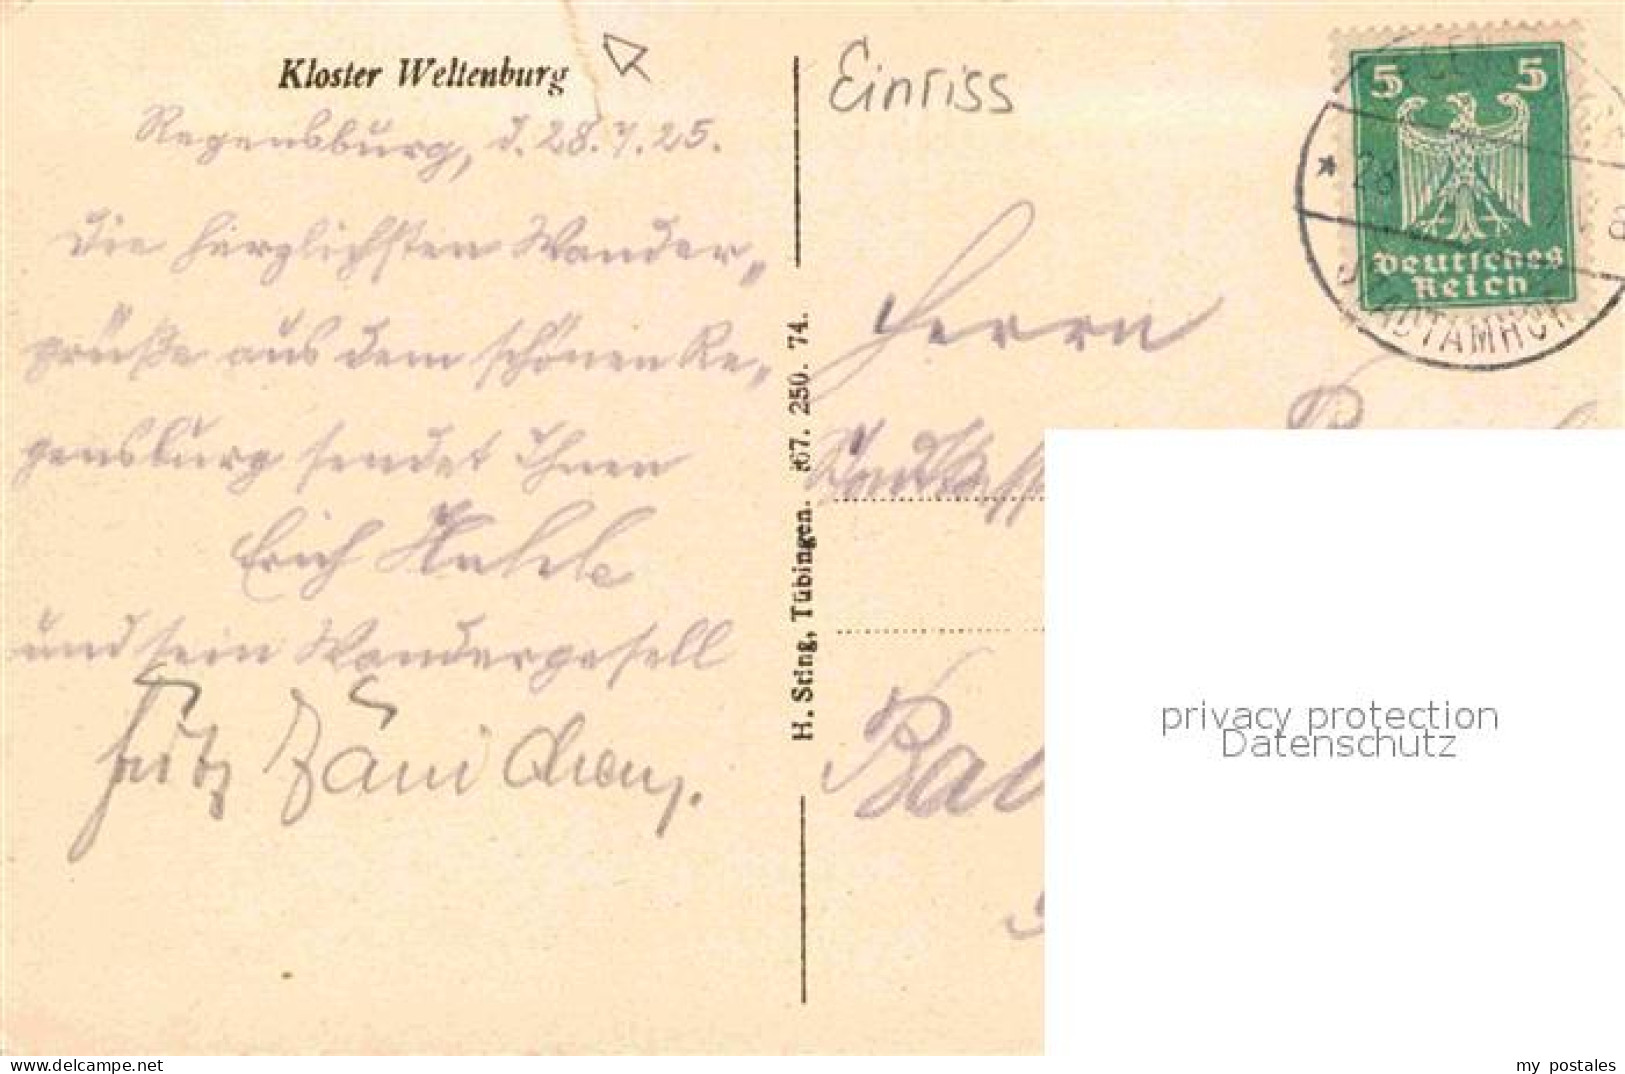 Kloster Weltenburg
Einriss
Regensburg, d. 28.7.25.
Die herzlichsten Wander„
grüße aus dem schönen Re„
gensburg sendet Ihnen
Erich
und sein Wandergesell
Fritz Jänichen.
H. Sting, Tübingen. 67. 250. 74.
5 5
Deutsches
Reich
* 28
8
STADTAMHOF
Herrn
privacy protection
Datenschutz
Delcampe.net
my_postales